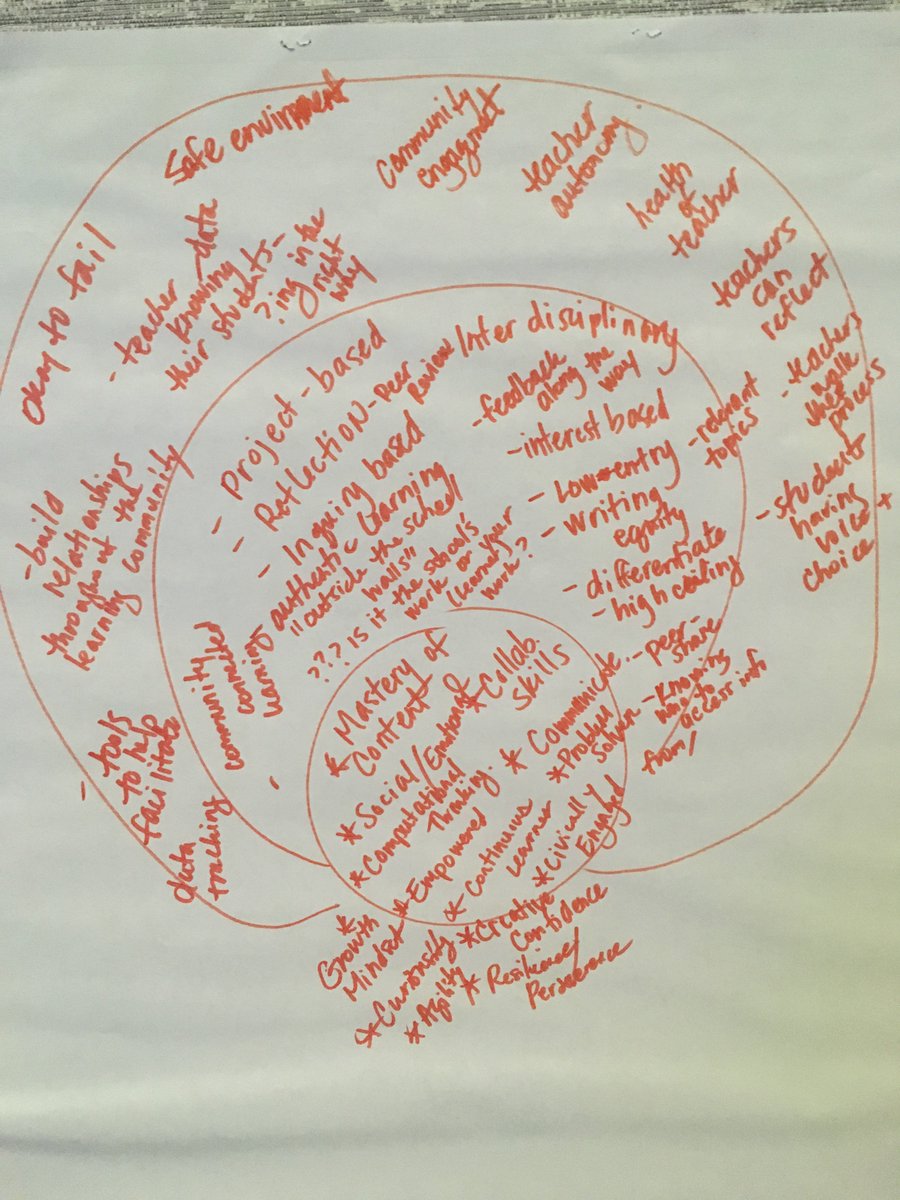 Safe envirnment
Community
engagmet
teacher
autonomy
health
of
teacher
teachers
can
reflect
- teachers
the
process
- students
having
voice +
choice
okay to fail
- teacher - data
knowing
their students -
?ing in the
right
way
- build
relationships
throughout the
learning community
- tools
to help
facilitate
data
tracking
- Project-based
- Reflection - peer
Review
- Inquiry based
- authentic learning
"outside the school
walls"
??? is it the school's
work or your
learning
work?
community
connected
learning
Interdisciplinary
- feedback
along the
way
- interest based
- relevant
topics
- low-entry
- writing
equity
- differentiate
- high ceiling
- peer-
share
- Knowing
to
access info
from/
* Mastery of
Content
* Collab.
Skills
* Social/Emotional
* Computational
Thinking
* Communicate
* Problem
Solver
* Empowered
* Continuous
Learner
* Civically
Engaged
* Growth
Mindset
* Creative
Confidence
* Curiosity
* Agility
* Resilience/
Perseverence